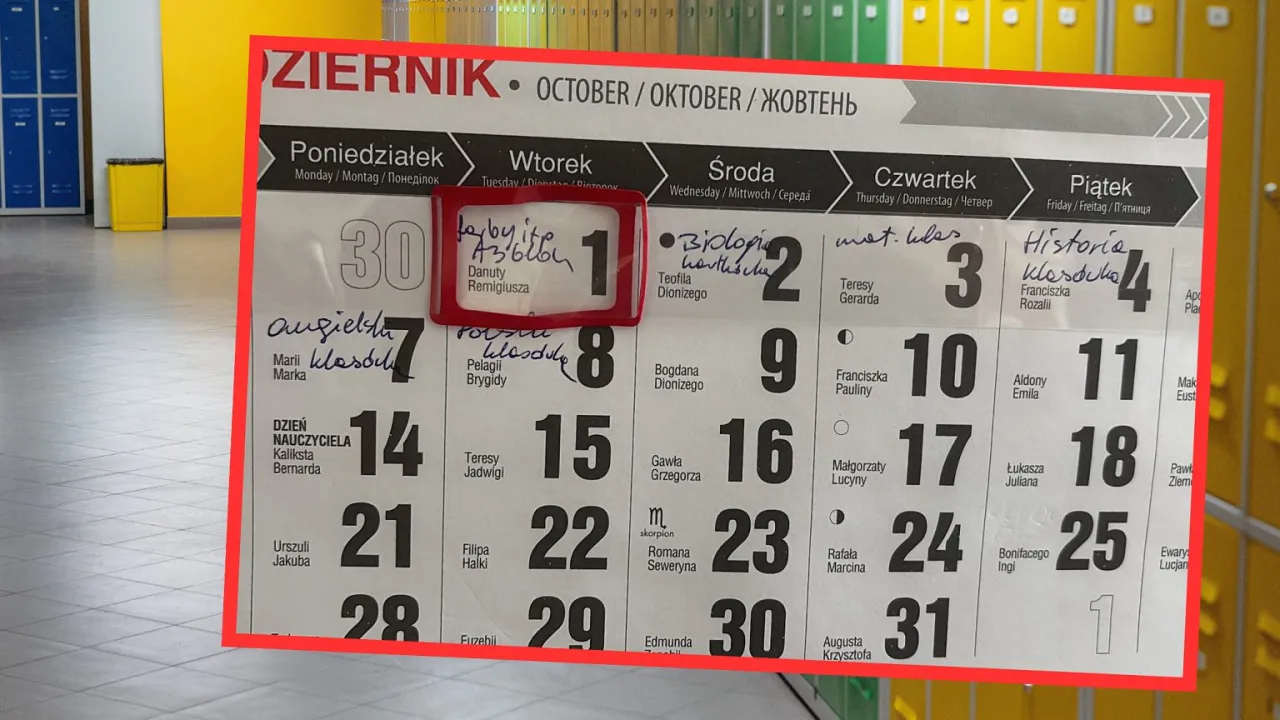 DZIERNIK • OCTOBER / OKTOBER / ЖОВТЕНЬ
Poniedziałek Wtorek Środa Czwartek Piątek
Monday / Montag / Понеділок Tuesday / Dienstag / Вівторок Wednesday / Mittwoch / Середа Thursday / Donnerstag / Четвер Friday / Freitag / П'ятниця
30
farby
Danuty
Remigiusza
1
Biologia
kartkówka
Teofila
Dionizego
2
mat. klas
Teresy
Gerarda
3
Historia
klasówka
Franciszka
Rozalii
4
angielski
klasówka
Marii
Marka
7
Polski
klasówka
Pelagii
Brygidy
8
Bogdana
Dionizego
9
Franciszka
Pauliny
10
Aldony
Emila
11
DZIEŃ
NAUCZYCIELA
Kaliksta
Bernarda
14
Teresy
Jadwigi
15
Gawła
Grzegorza
16
Małgorzaty
Lucyny
17
Łukasza
Juliana
18
Urszuli
Jakuba
21
Filipa
Halki
22
skorpion
Romana
Seweryna
23
Rafała
Marcina
24
Bonifacego
Ingi
25
28
Euzebii
29
Edmunda
30
Augusta
Krzysztofa
31
1